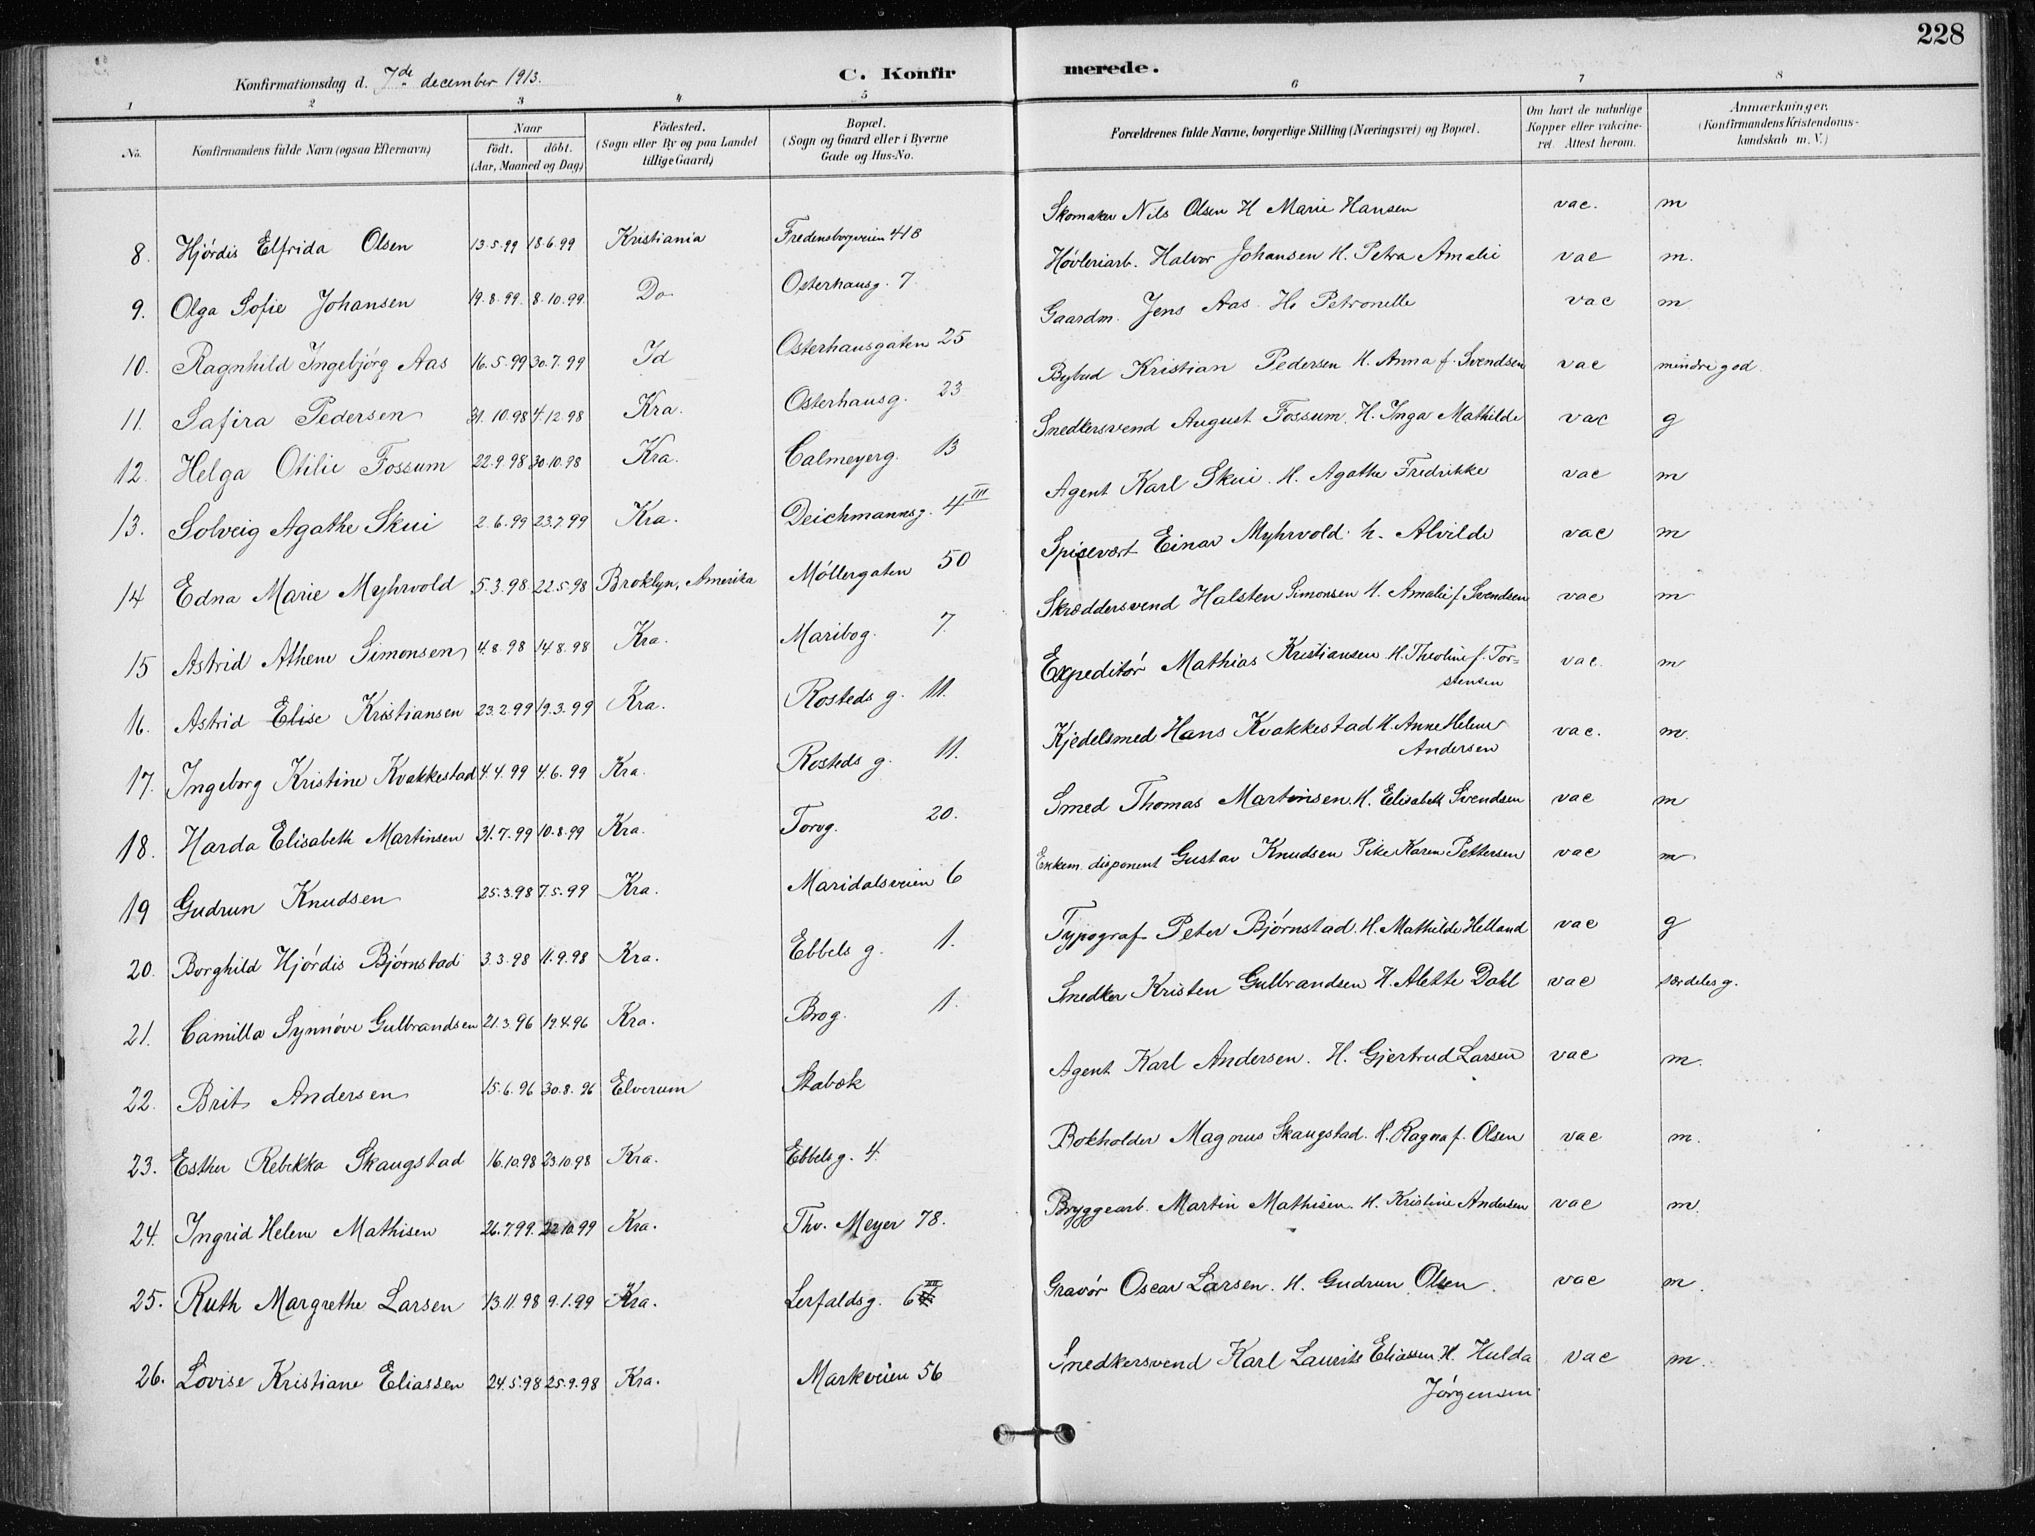 228
Konfirmationsdag d. 7de december 1913.
C. Konfir merede.
1 2 3 4 5 6 7 8
No. Konfirmandens fulde Navn (ogsaa Efternavn) Naar födt. döbt. (Aar, Maaned og Dag) Födested. (Sogn eller By og paa Landet tillige Gaard) Bopæl. (Sogn og Gaard eller i Byerne Gade og Hus-No. Forældrenes fulde Navne, borgerlige Stilling (Næringsvei) og Bopæl. Om havt de naturlige Kopper eller vakcineret. Attest herom. Anmærkninger. (Konfirmandens Kristendomskundskab m. V.)
8. Hjördis Elfrida Olsen 13.5.99 18.6.99 Kristiania Fredensborgveien 41 B Skomaker Nils Olsen H Marie Hansen vac. m
9. Olga Sofie Johansen 19.8.99. 8.10.99. Do Osterhausg. 7. Høvleriarb. Halvor Johansen H. Petra Amalie vac m.
10. Ragnhild Ingebjörg Aas 16.5.99 30.7.99 Id Osterhausgaten 25 Gaardm. Jens Aas H. Petronelle vac m
11. Safira Pedersen 31.10.98 4.12.98 Kra. Osterhausg. 23 Bybud Kristian Pedersen H. Anna f. Svendsen vac mindre god.
12. Helga Otilie Fossum 22.9.98 30.10.98 Kra. Calmeyerg. 13 Snedkersvend August Fossum. H. Inga Mathilde vac g
13. Solveig Agathe Skui 2.6.99 23.7.99 Kra. Deichmannsg. 4 III Agent Karl Skui. H. Agathe Fredrikke vac m
14 Edna Marie Myhrvold 5.3.98 22.5.98 Broklyn, Amerika Möllergaten 50 Spisevært Einar Myhrvold h. Alvilde vac m
15 Astrid Athene Simonsen 4.8.98 14.8.98 Kra. Maribog. 7. Skræddersvend Halsten Simonsen H. Amalie f. Svendsen vac m
16. Astrid Elise Kristiansen 23.2.99 19.3.99 Kra. Rosteds g. 11. Expeditör Mathias Kristiansen H. Theoline f. Tor=
stensen vac. m
17. Ingeborg Kristine Kvakkestad 4.4.99 4.6.99 Kra. Rosteds g. 11. Kjedelsmed Hans Kvakkestad H. Anne Helene
Andersen vac. m.
18. Harda Elisabeth Martinsen 31.7.99 10.8.99 Kra. Torvg. 20. Smed Thomas Martinsen. H. Elisabeth Svendsen vac m
19 Gudrun Knudsen 25.3.98 7.5.99 Kra. Maridalsveien 6 Enkem. disponent Gustav Knudsen Pike Karen Pettersen vac m
20. Borghild Hjördis Björnstad 3.3.98 11.9.98 Kra. Ebbels g. 1. Typograf Peter Bjørnstad. H. Mathilde Helland vac g
21. Camilla Synnöve Gulbrandsen 21.3.96 19.4.96 Kra. Brog. 1. Snedker Kristen Gulbrandsen H. Alette Dahl vac særdeles g.
22. Brit Andersen 15.6.96 30.8.96 Elverum Stabæk Agent Karl Andersen. H. Gjertrud Larsen vac m.
23. Esther Rebekka Skaugstad 16.10.98 23.10.98 Kra. Ebbels g. 4. Bokholder Magnus Skaugstad. H. Ragna f. Olsen vac m.
24. Ingrid Helene Mathisen 26.7.99. 22.10.99 Kra. Thv. Meyer 78. Bryggearb. Martin Mathisen. H. Kristine Andersen vac m.
25. Ruth Margrethe Larsen 13.11.98 9.1.99 Kra. Lerfaldsg. 6 III Gravör Oscar Larsen. H. Gudrun Olsen. vac m.
26. Lovise Kristiane Eliassen 24.5.98 25.9.98 Kra. Markveien 56 Snedkersvend Karl Laurits Eliassen. H. Hulda
Jörgensen. vac m.